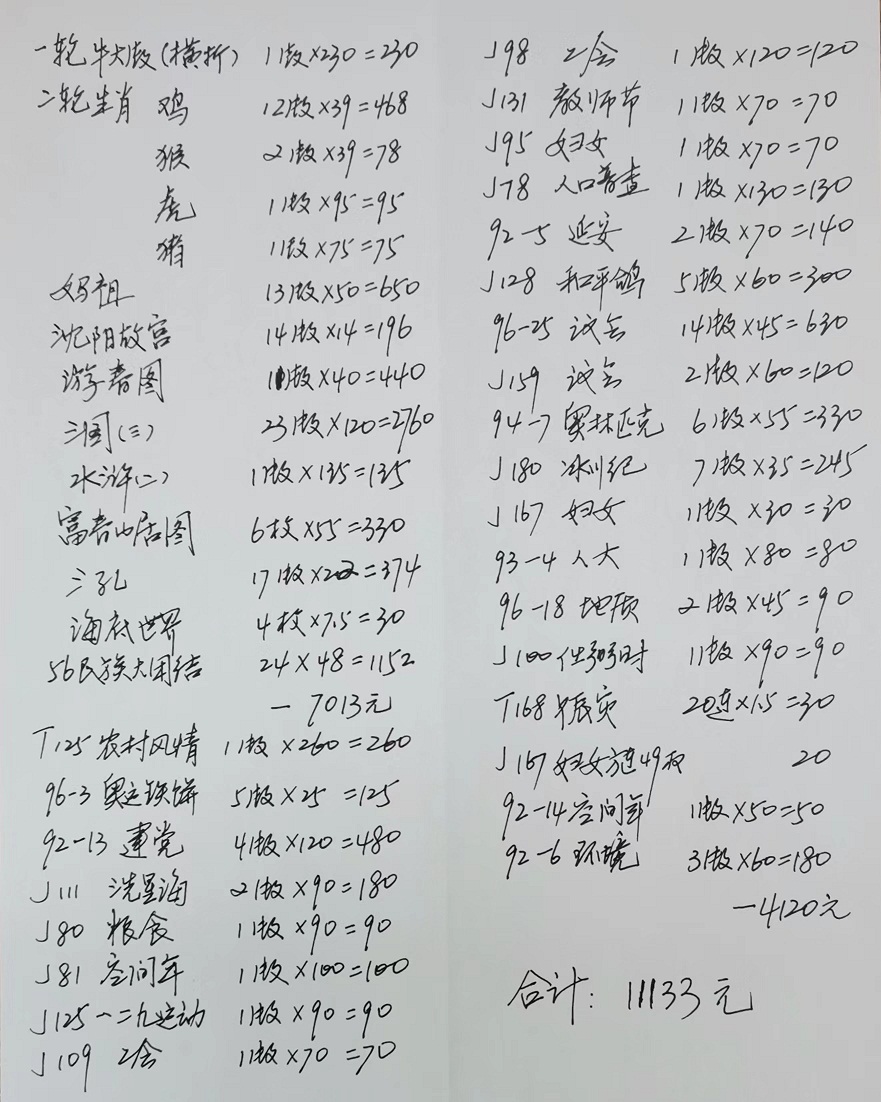 一轮牛大版(横折) 1版×230=230
二轮生肖 鸡 12版×39=468
猴 2版×39=78
虎 1版×95=95
猪 1版×75=75
妈祖 13版×50=650
沈阳故宫 14版×14=196
游春图 11版×40=440
三国(三) 23版×120=2760
水浒(二) 1版×135=135
富春山居图 6枚×55=330
三孔 17版×22=374
海底世界 4枚×7.5=30
56民族大团结 24×48=1152
—7013元
T125 农村风情 1版×260=260
96-3 奥运铁饼 5版×25=125
92-13 建党 4版×120=480
J111 冼星海 2版×90=180
J80 粮食 1版×90=90
J81 空间年 1版×100=100
J125 一二九运动 1版×90=90
J109 工会 1版×70=70
J98 工会 1版×120=120
J131 教师节 1版×70=70
J95 妇女 1版×70=70
J78 人口普查 1版×130=130
92-5 延安 2版×70=140
J128 和平鸽 5版×60=300
96-25 议会 14版×45=630
J159 议会 2版×60=120
94-7 奥林匹克 6版×55=330
J180 冰川纪 7版×35=245
J167 妇女 1版×30=30
93-4 人大 1版×80=80
96-18 地质 2版×45=90
J100 任弼时 1版×90=90
T168 赈灾 20连×1.5=30
J167 妇女方连49枚 20
92-14 空间年 1版×50=50
92-6 环境 3版×60=180
—4120元
合计: 11133元